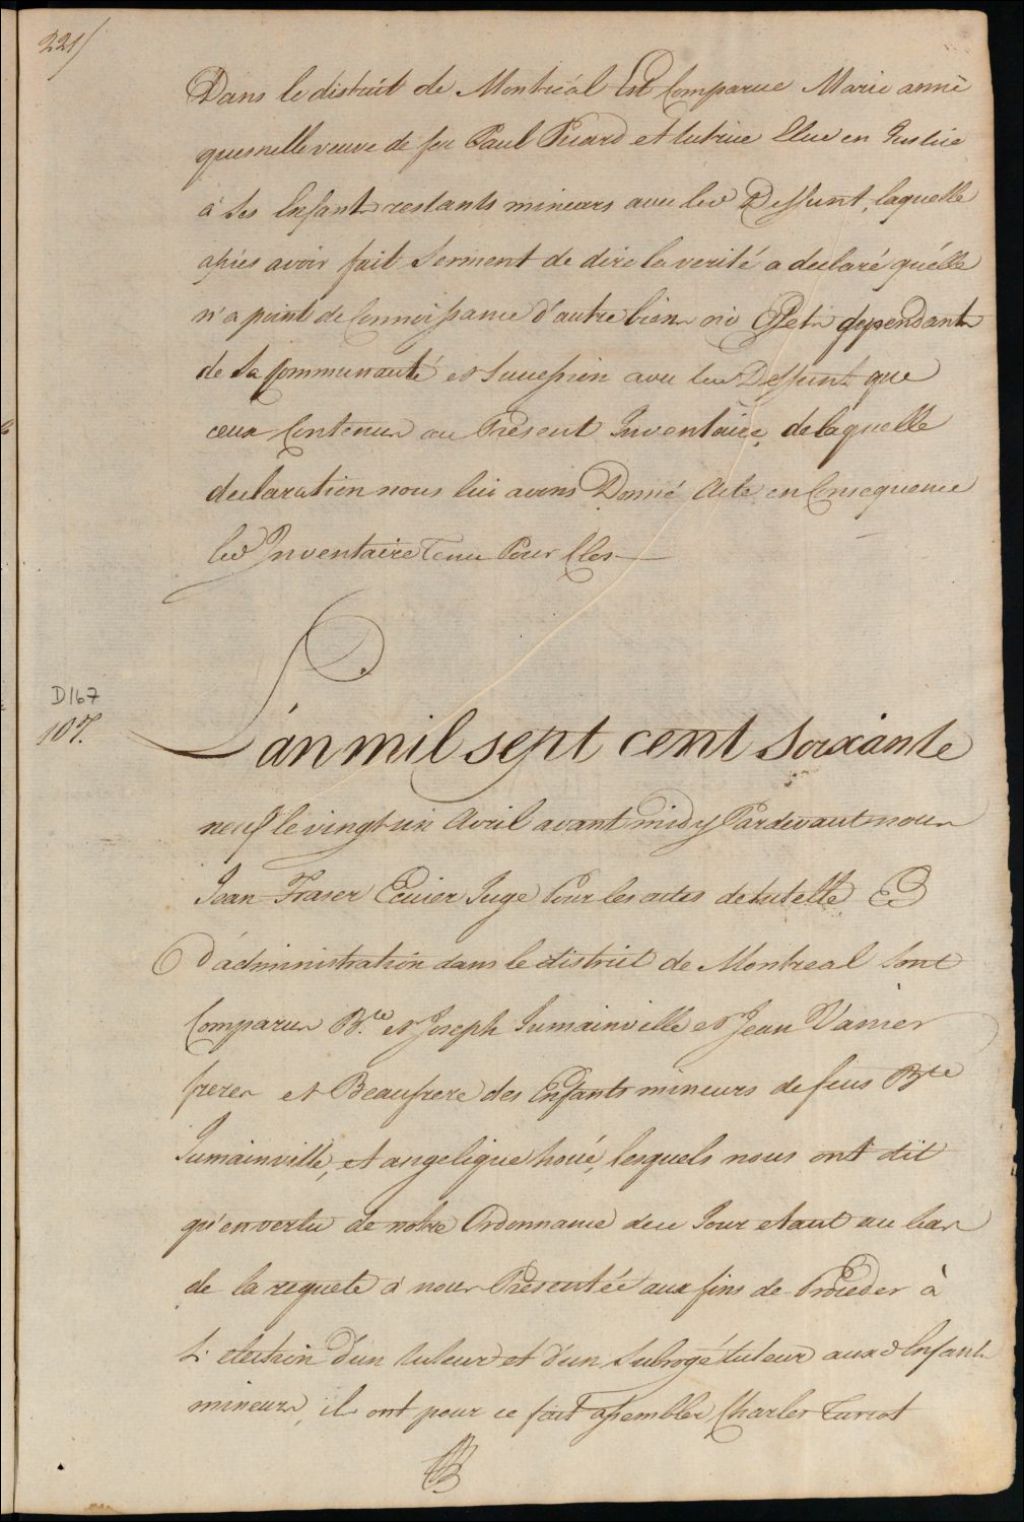 221/
Dans le district de Montréal Est Comparue Marie anne
quesnelle veuve de feu Paul Picard et tutrice Elue en Justice
à Ses Enfants restants mineurs avec led Deffunt, laquelle
après avoir fait Serment de dire la verité a declaré qu'elle
n'a point de Connoissance d'autre biens ni Effets dependants
de la Communauté et Succession avec led Deffunt que
ceux Contenus au Présent Inventaire, de laquelle
declaration nous lui avons Donné Acte en Consequence
led Inventaire Tenu Pour Clos
D167
107.
L'an mil sept cent Soixante
neuf le vingt un Avril avant midy Pardevant nous
Jean Fraser Ecuier Juge Pour les actes de tutelle Et
D'administration dans le district de Montreal Sont
Comparus Bte et Joseph Jumainville et Jean Vanier
freres et Beaufrere des Enfants mineurs de feus Bte
Jumainville, et angelique houé, lesquels nous ont dit
qu'en vertu de notre Ordonnance de ce Jour etant au bas
de la requete à nous Présentée aux fins de Proceder à
L'election D'un tuteur et d'un Subrogé tuteur auxd Enfants
mineurs, ils ont pour ce fait assembler Charles Turcot